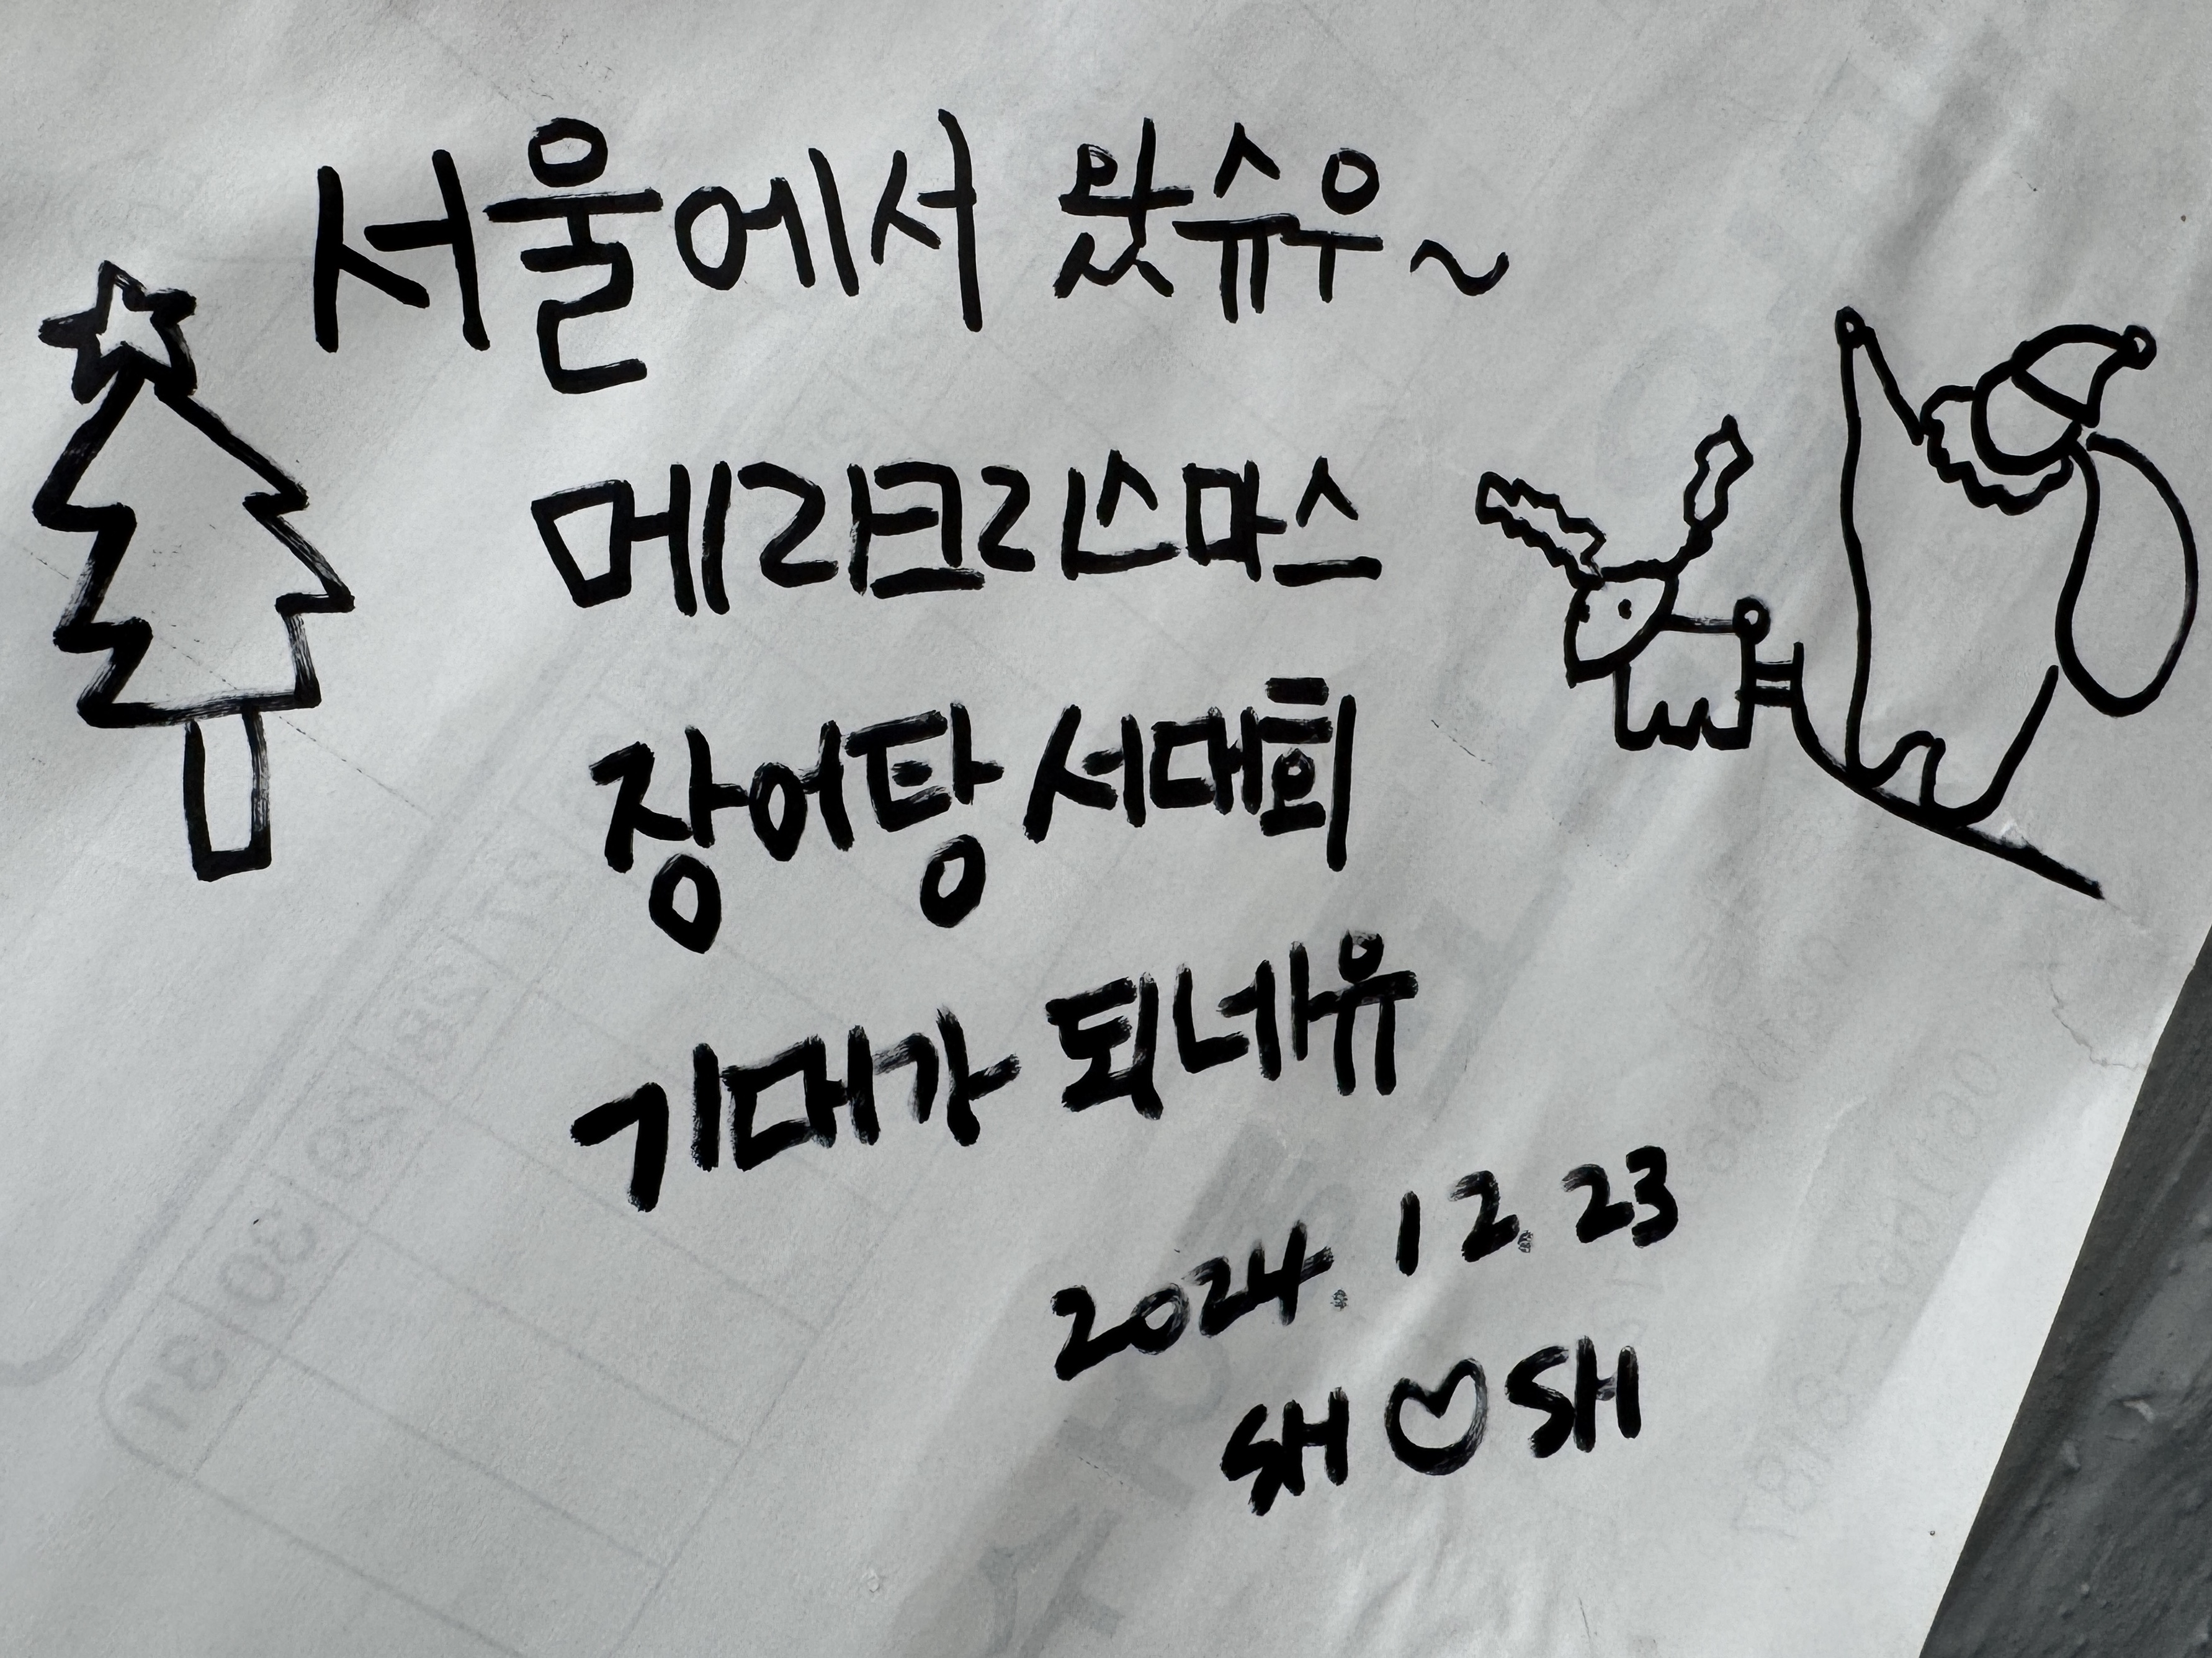 서울에서 왔슈우~
메리크리스마스
장어탕 서대회
기대가 되네유
2024. 12. 23
SH♡SH